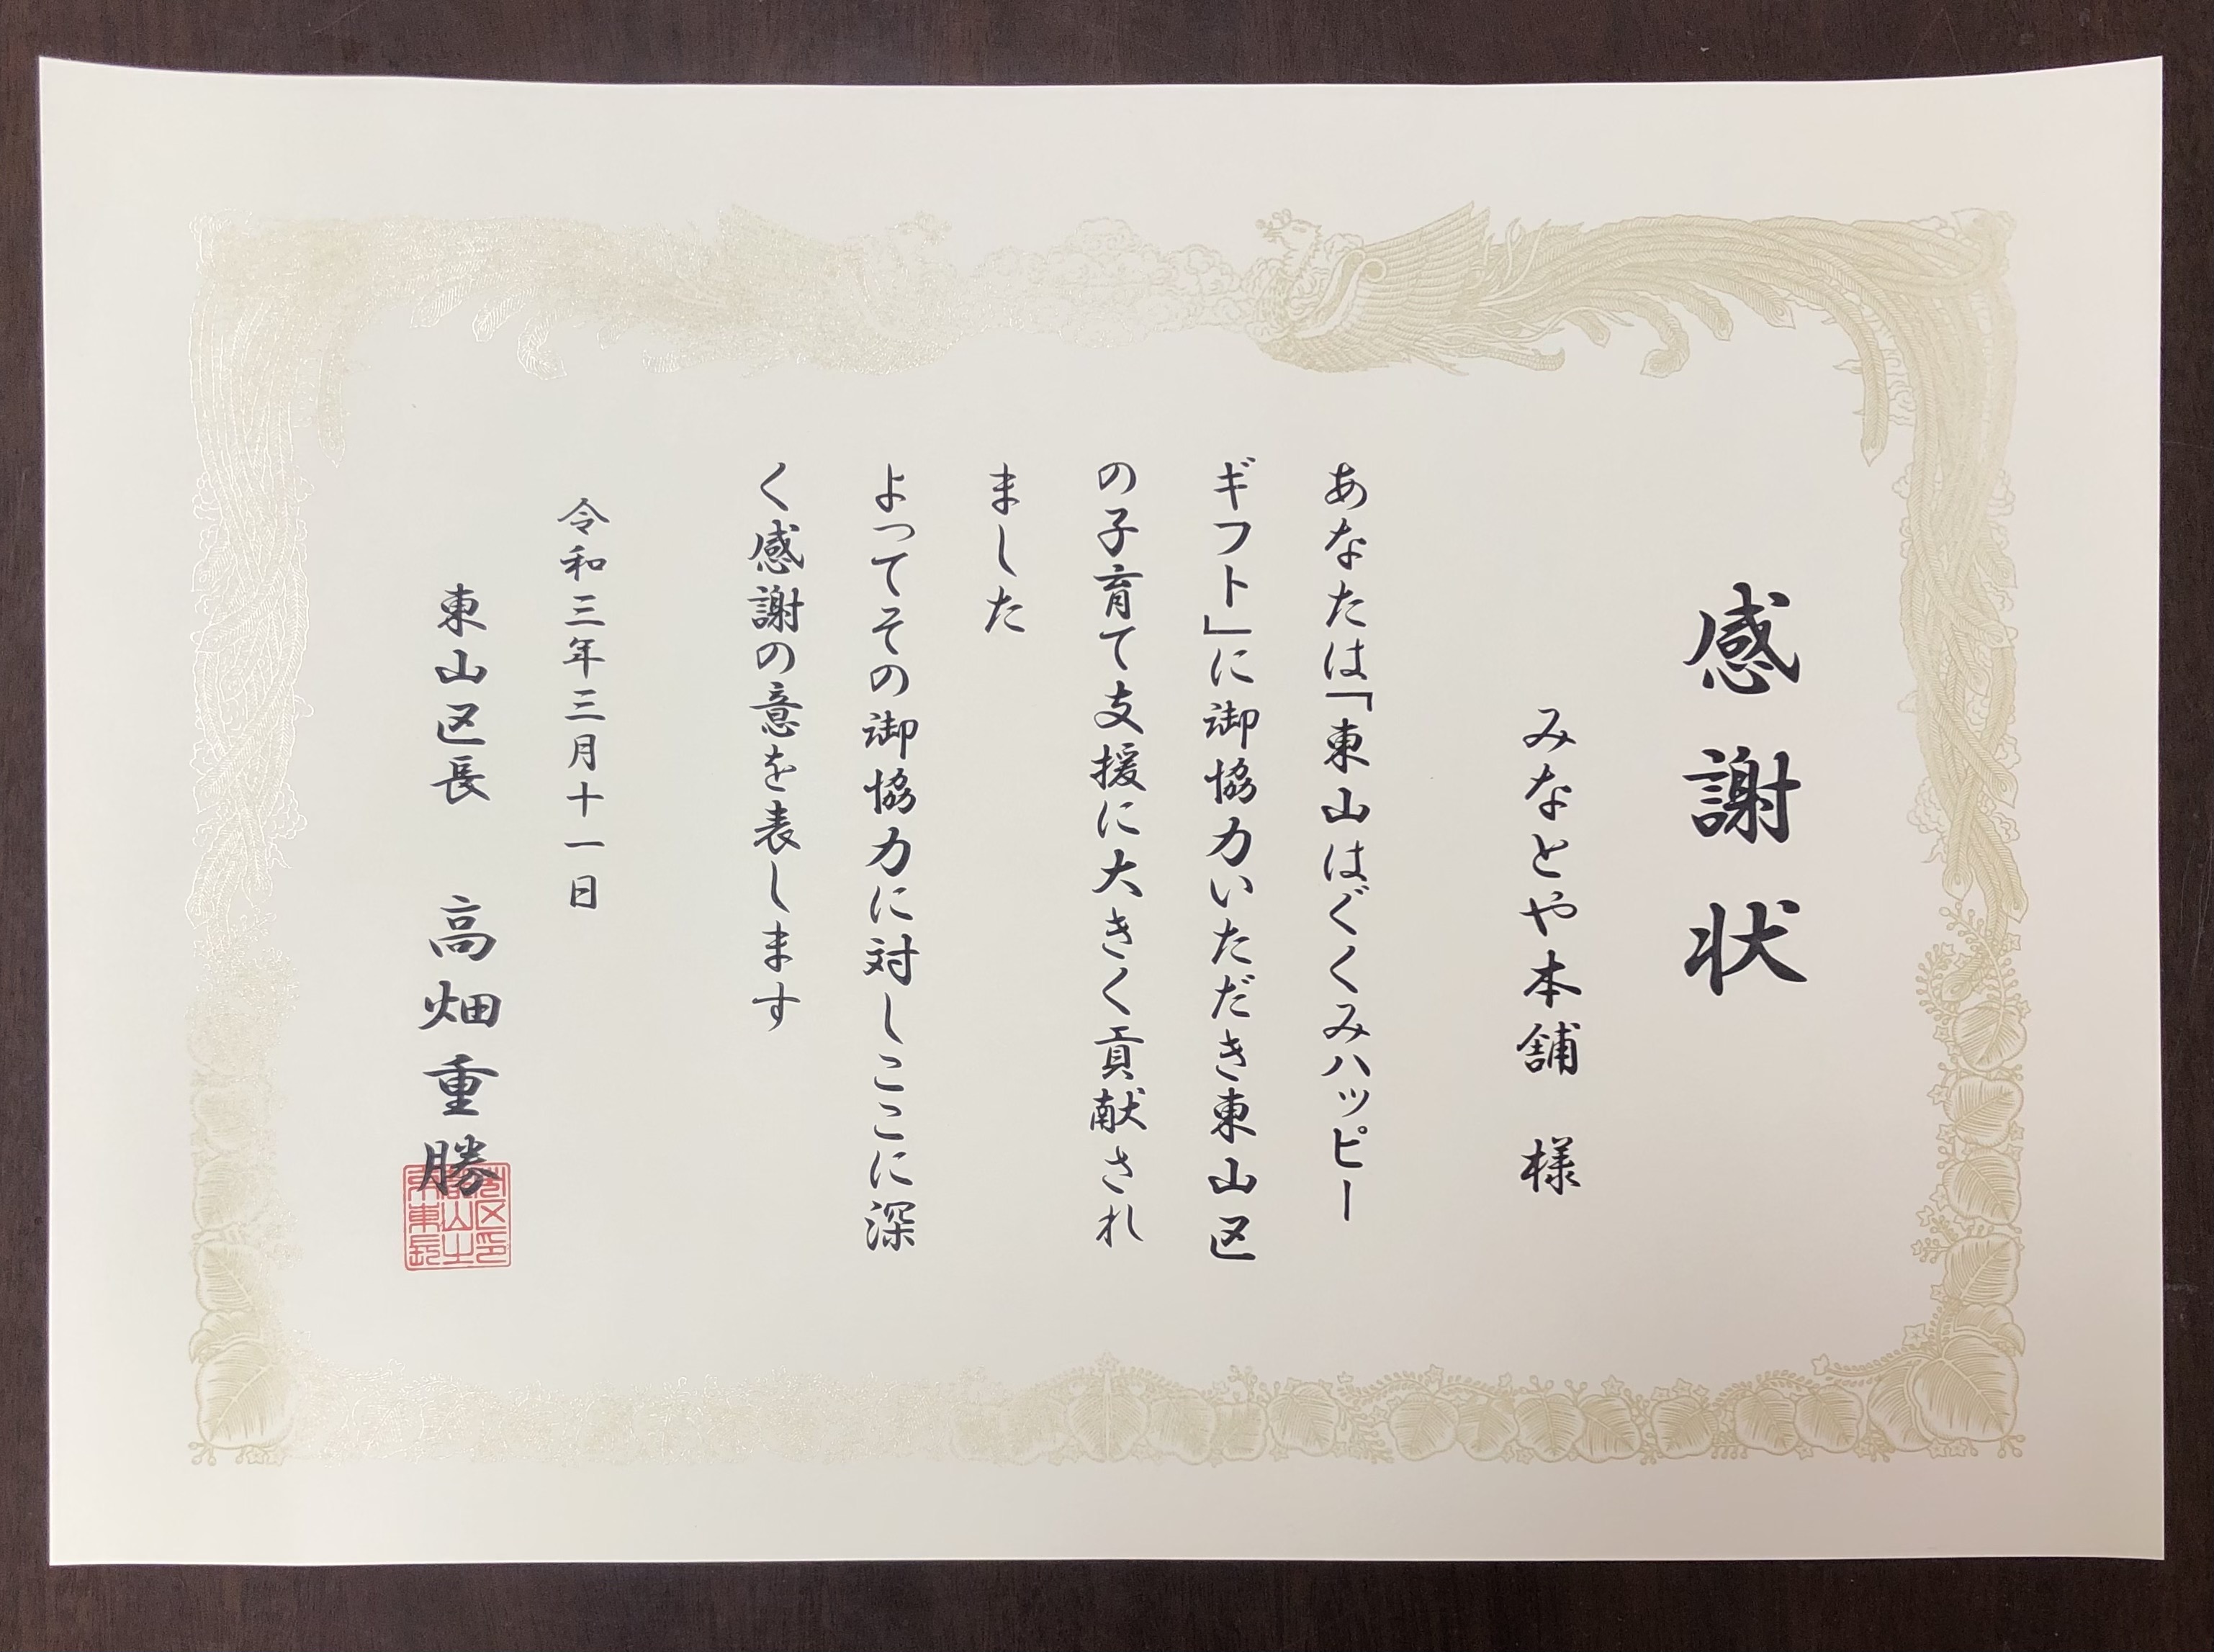 感謝状
みなとや本舗　様
あなたは「東山はぐくみハッピー
ギフト」に御協力いただき東山区
の子育て支援に大きく貢献され
ました
よってその御協力に対しここに深
く感謝の意を表します
令和三年三月十一日
東山区長　高畑重勝